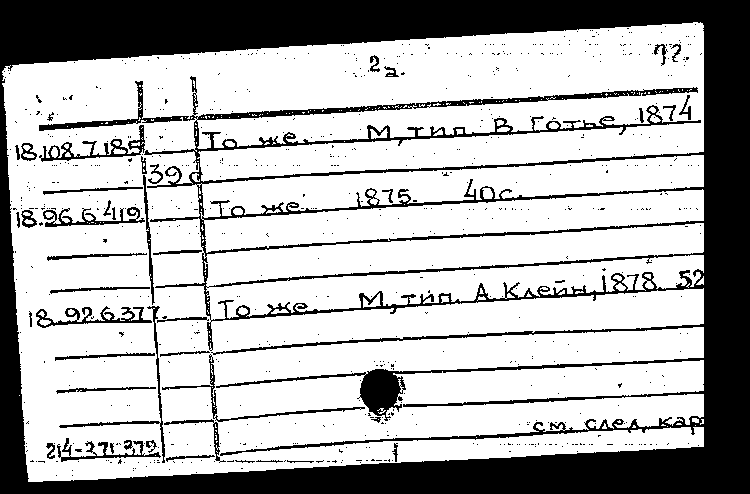 2а.
18.108.7.185. То же. М, тип. В Готье, 1874
39 с
18.96.6.419. То же. 1875. 40с.
18.92.6.377. То же. М, тип. А Клейн, 1878. 52
см. след. кар
214-271.372